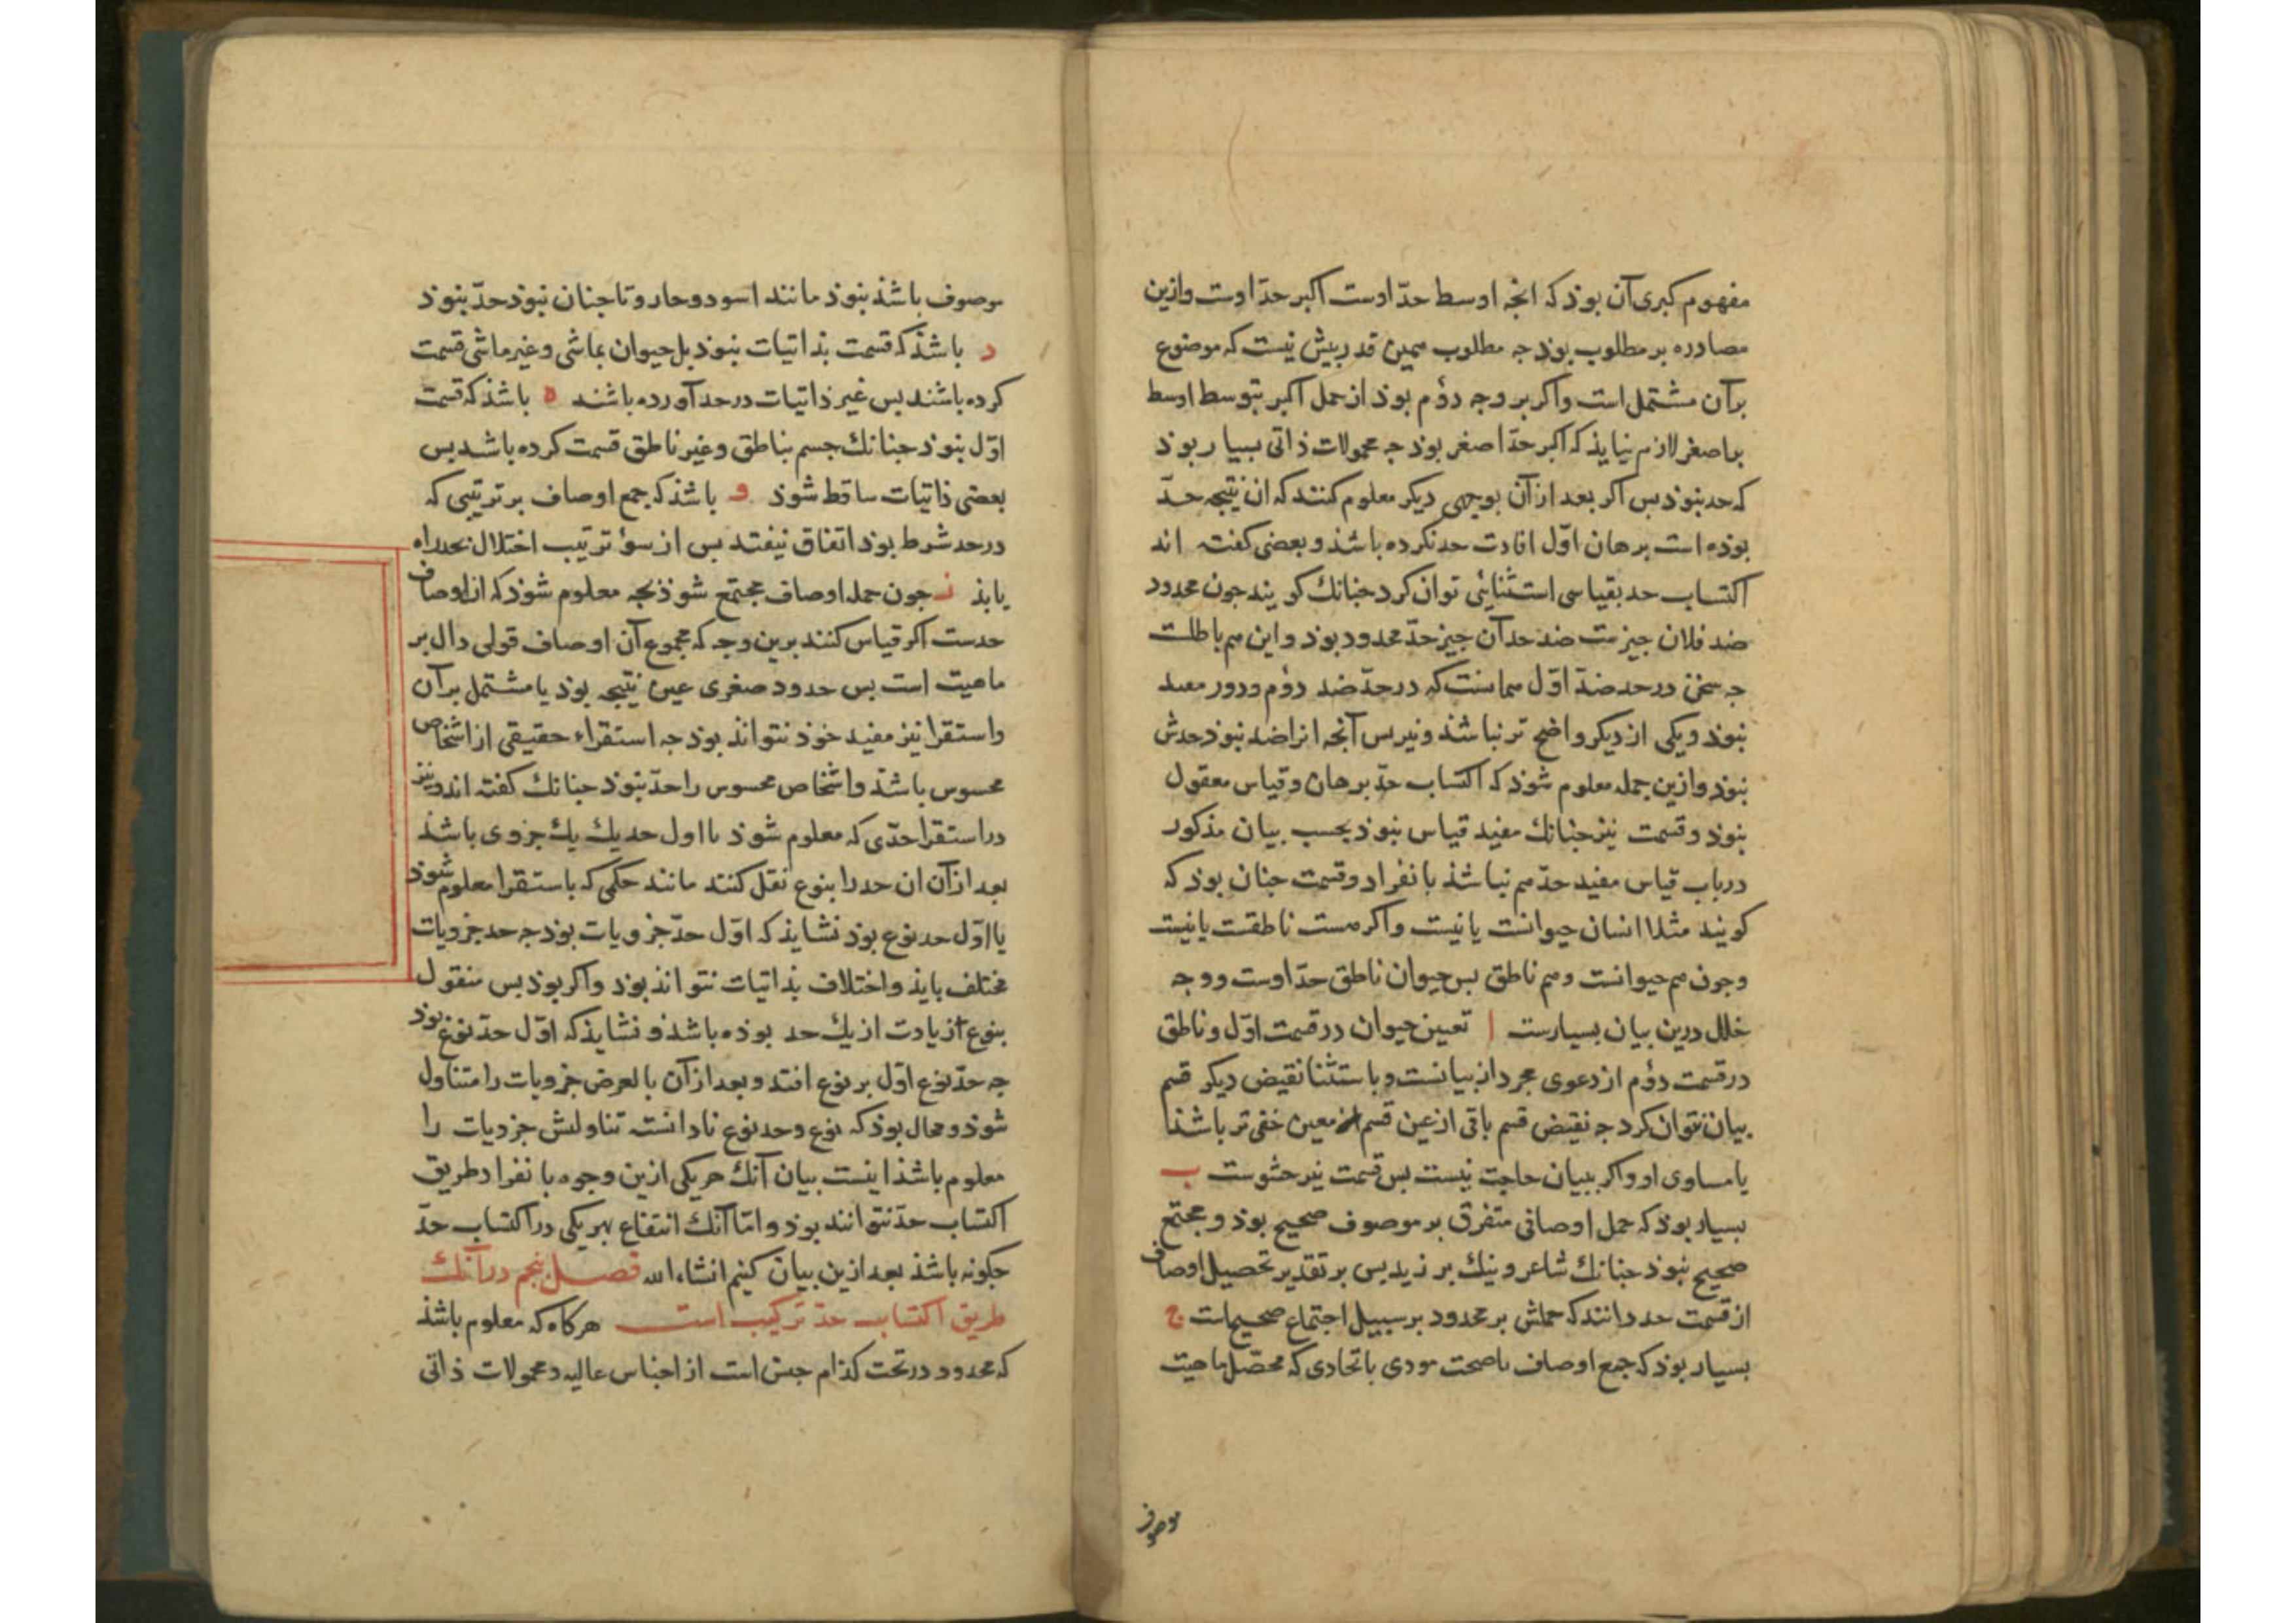 مفهوم کبری آن بوذ که انجه اوسط حدّ اوست اکبر حدّ اوست وازین
مصادره بر مطلوب بوذ جه مطلوب همین قدر بیش نیست که موضوع
بر آن مشتمل است واکر بر وجه دوٌم بوذ از حمل اکبر بتوسط اوسط
بر اصغر لازم نیایذ که اکبر حدّ اصغر بوذ جه محمولات ذاتی بسیار بوذ
که حد نبوذ بس اکر بعد از آن بوجهی دیکر معلوم کنند که ان نتیجه حدّ
بوذه است برهان اوّل افادت حد نکرده باشذ و بعضی کفته اند
اکتساب حد بقیاسی استثنایٔی توان کرد جنانك کویند جون محدود
ضد فلان جیزست ضد حد آن جیز حدّ محدود بوذ و این هم باطلست
جه سخن در حد ضدّ اوّل همانست که در حدّ ضد دوٌم ودور مفید
نبوذ ویکی از دیکر واضح تر نباشذ ونیز بس آنجه انرا ضد نبوذ حدش
نبوذ وازین جمله معلوم شوذ که اکتساب حدّ ببرهان وقیاس معقول
نبوذ وقسمت نیز جنانك مفید قیاس نبوذ بحسب بیان مذکور
در باب قیاس مفید حدّ هم نباشذ بانفراد وقسمت جنان بوذ که
کویند مثلا انسان حیوانست یا نیست واکر هست ناطقست یا نیست
وجون هم حیوانست وهم ناطق بس حیوان ناطق حدّ اوست ووجه
خلل درین بیان بسیارست ا تعیین حیوان در قسمت اوّل وناطق
در قسمت دوٌم از دعوی مجرد از بیانست وباستثنا نقیض دیکر قسم
بیان نتوان کرد جه نقیض قسم باقی از عین قسم معین خفی تر باشذ
یا مساوی او واکر ببیان حاجت نیست بس قسمت نیز حشوست ب
بسیار بوذ که حمل اوصافی متفرق بر موصوف صحیح بوذ و مجتمع
صحیح نبوذ جنانك شاعر و نیك بر زید بس بر تقدیر تحصیل اوصاف
از قسمت حد دانند که حملش بر محدود بر سبیل اجتماع صحیح است ج
بسیار بوذ که جمع اوصاف با صحت مودی باتحادی که محصّل ماهیت
موصوف
موصوف باشذ نبوذ مانند اسود وحار و تا جنان نبوذ حدّ نبوذ
د باشذ که قسمت بذاتیات نبوذ بل حیوان بماشی وغیر ماشی قسمت
کرده باشند بس غیر ذاتیات در حد آورده باشند ه باشذ که قسمت
اوّل نبوذ جنانك جسم بناطق وغیر ناطق قسمت کرده باشد بس
بعضی ذاتیات ساقط شوذ و باشذ که جمع اوصاف بر ترتیبی که
در حد شرط بوذ اتفاق نیفتد بس از سوٴ ترتیب اختلال بحد راه
یابذ ز جون جمله اوصاف مجتمع شوذ بجه معلوم شوذ که از اوصاف
حدست اکر قیاس کنند برین وجه که مجموع آن اوصاف قولی دال بر
ماهیت است بس حدود صغری عین نتیجه بوذ یا مشتمل بر آن
واستقرا نیز مفید خوذ نتواند بوذ جه استقراء حقیقی از اشخاص
محسوس باشذ واشخاص محسوس را حدّ نبوذ جنانك کفته اند ونیز
در استقرا حدّی که معلوم شوذ یا اول حد یك یك جزوی باشذ
بعد از آن ان حد را بنوع نقل کنند مانند حکمی که باستقرا معلوم شوذ
یا اوّل حد نوع بوذ نشایذ که اوّل حدّ جزویات بوذ جه حد جزویات
مختلف بایذ واختلاف بذاتیات نتواند بوذ واکر بوذ بس منقول
بنوع از یادت از یك حد بوذه باشذ و نشایذ که اوّل حدّ نوع بوذ
جه حدّ نوع اوّل بر نوع افتد وبعد از آن بالعرض جزویات را متناول
شوذ ومحال بوذ که نوع وحد نوع نادانسته تناولش جزویات را
معلوم باشذ اینست بیان آنك هر یکی ازین وجوه بانفراد طریق
اکتساب حدّ نتوانند بوذ وامّا آنك انتفاع بهر یکی در اکتساب حدّ
جکونه باشذ بعد ازین بیان کنیم انشاء الله فصل پنجم در آنك
طریق اکتساب حدّ ترکیب است هرکاه که معلوم باشذ
که محدود در تحت کذام جنس است از اجناس عالیه ومحمولات ذاتی